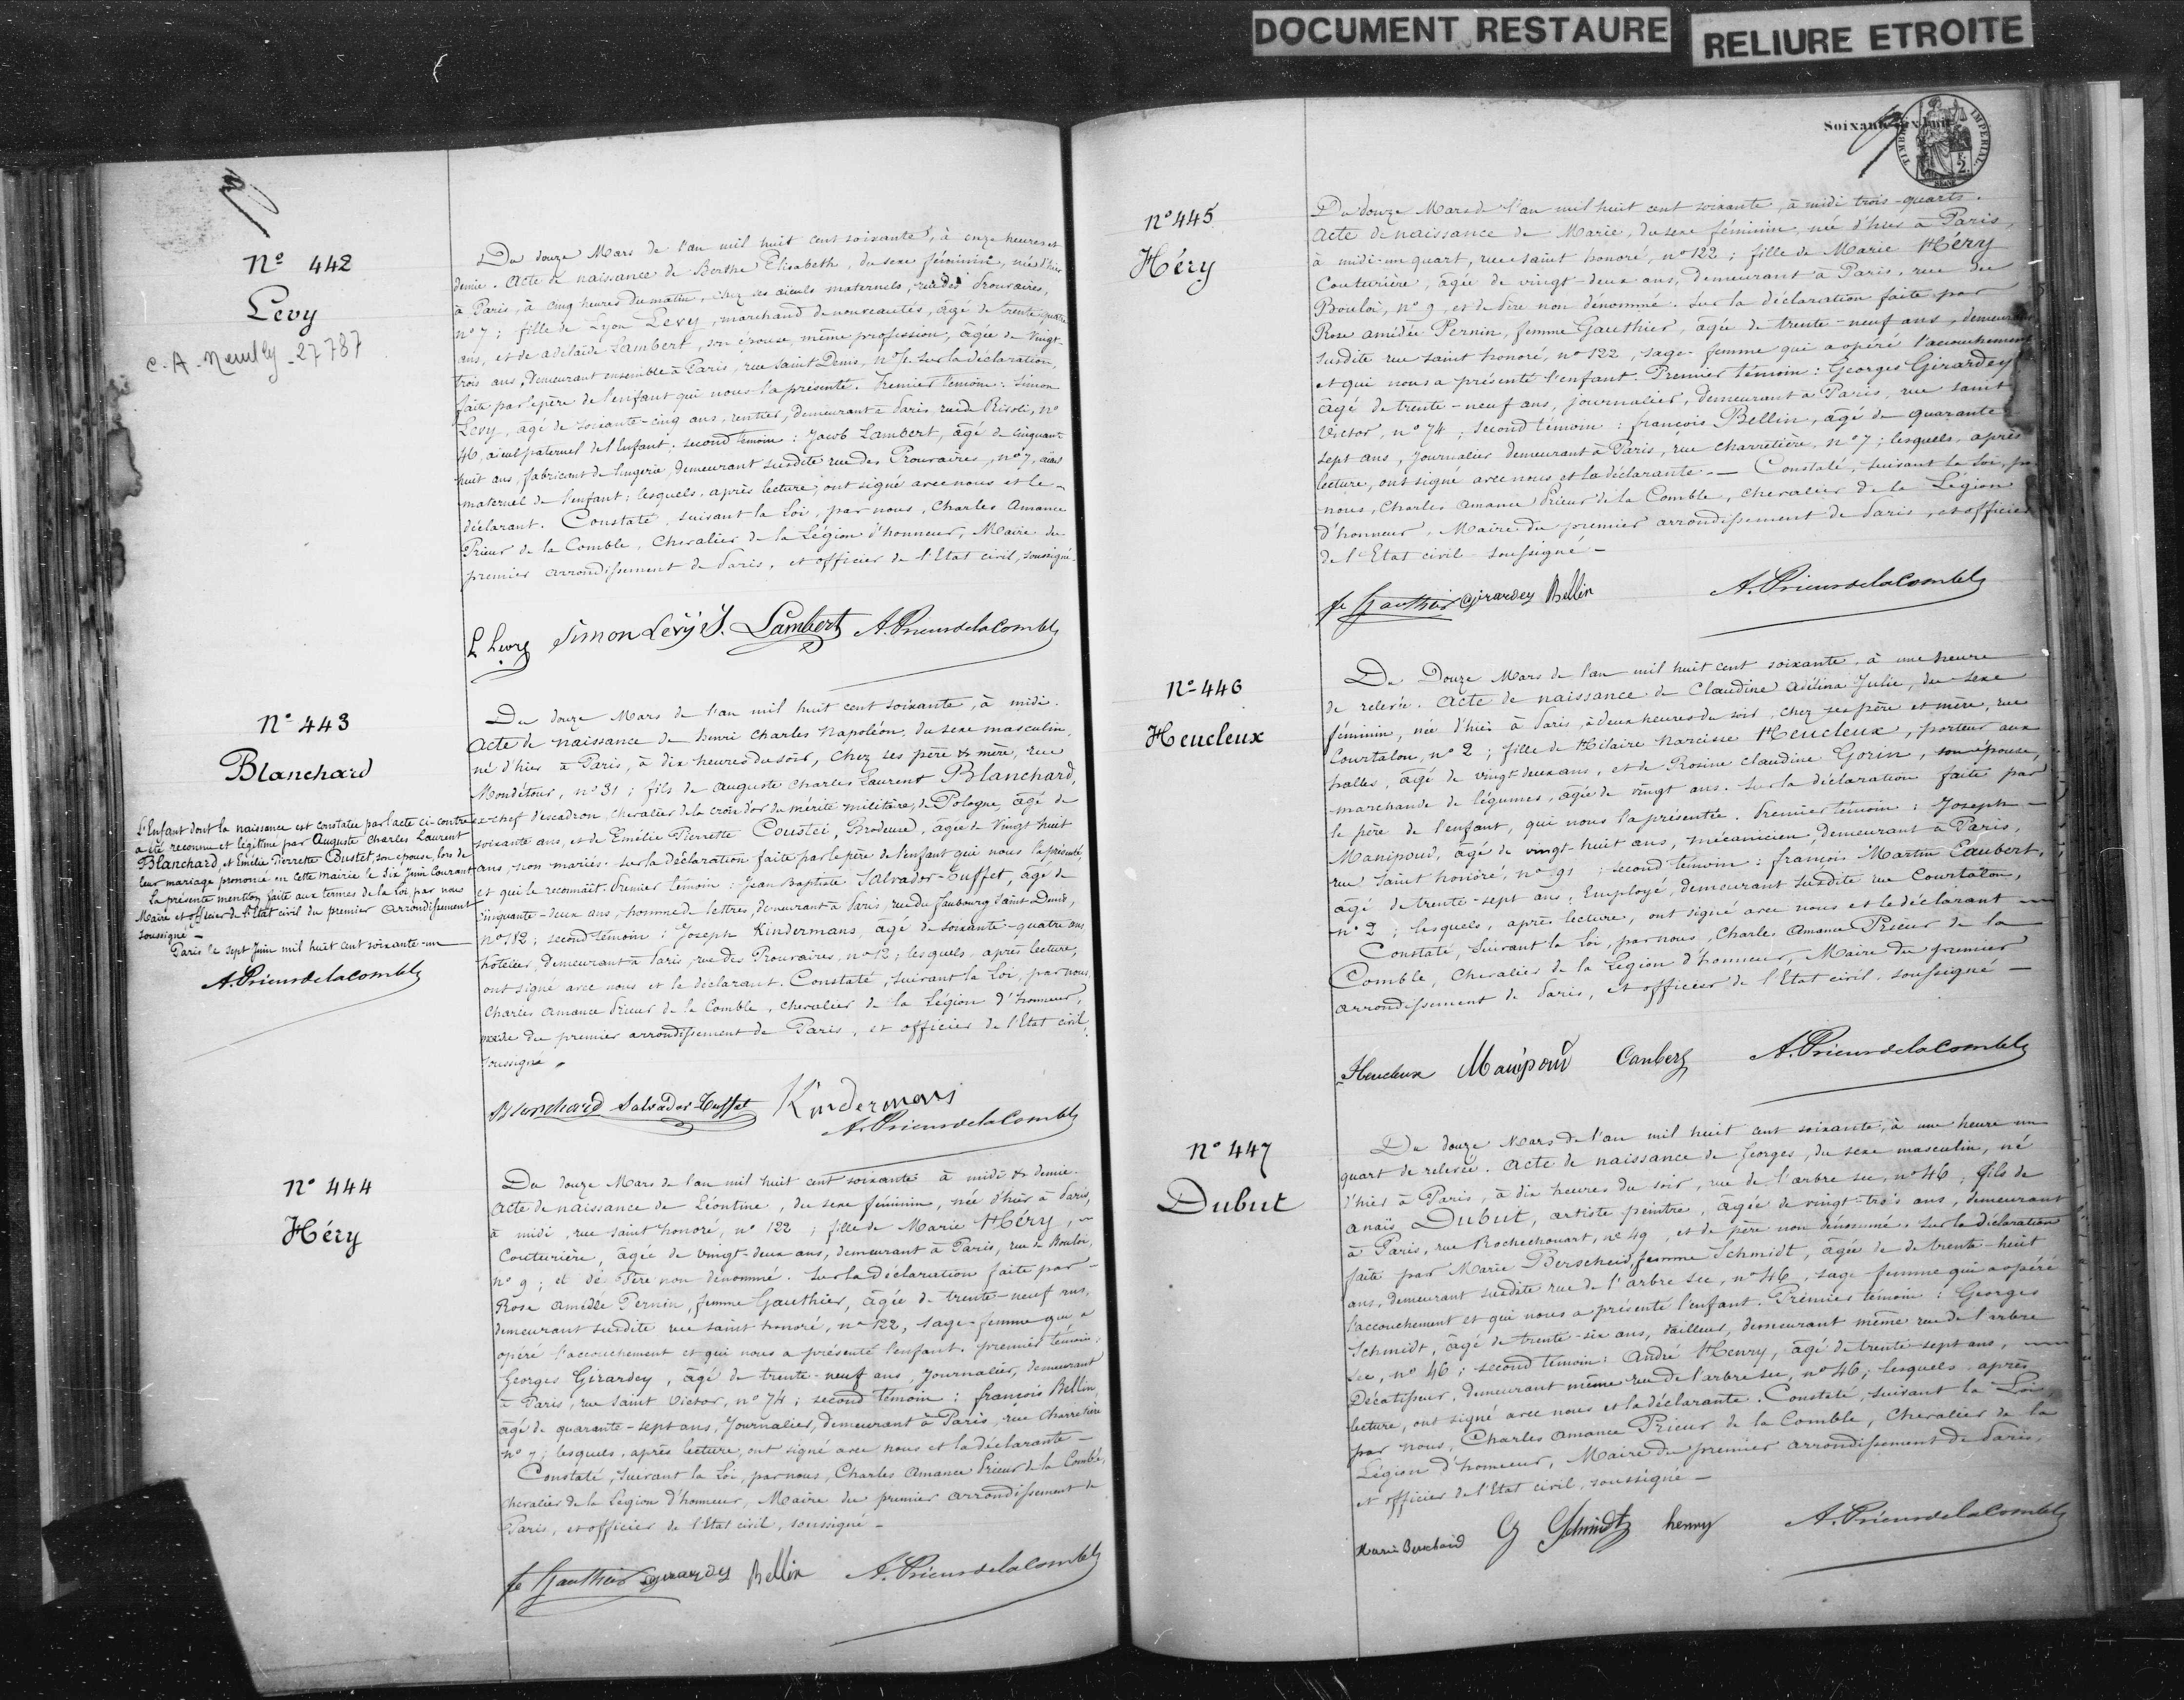 DOCUMENT RESTAURE
RELIURE ETROITE
Nº 442
Levy
C. A. Neuilly - 27787
Du douze Mars de l'an mil huit cent soixante, à onze heures et
demie. Acte de naissance de Berthe Elisabeth, du sexe féminin, née d'hier
à Paris, à cinq heures du matin, chez ses aïeuls maternels, rue des Prouvaires,
nº 7; fille de Lyon Levy, marchand de nouveautés, âgé de trente quatre
ans, et de adélaïde Lambert, son épouse, même profession, âgée de vingt-
trois ans, demeurant ensemble à Paris, rue Saint Denis, nº . Sur la déclaration,
faite par le père de l'enfant qui nous l'a présenté. Premier témoin: Simon
Levy, âgé de soixante-cinq ans, rentier, demeurant à Paris rue de Rivoli, nº
46, aïeul paternel de l'Enfant; second témoin: Jacob Lambert, âgé de cinquante
huit ans, fabricant de lingerie, demeurant susdite rue des Prouvaires, nº 7, aïeul
maternel de l'enfant; lesquels, après lecture, ont signé avec nous et le
déclarant. Constaté, suivant la Loi, par nous, Charles Amance
Prieur de la Comble, Chevalier de la Légion d'honneur, Maire du
premier arrondissement de Paris, et officier de l'Etat civil, soussigné.
L. Levy Simon Levy J. Lambert A. Prieur de la Comble
Nº 443
Blanchard
L'Enfant dont la naissance est constatée par l'acte ci-contre
a été reconnu et légitimé par Auguste Charles Laurent
Blanchard, et Emélie Pierrette Coustet, son épouse, lors de
leur mariage prononcé en cette mairie le Six Juin Courant
La présente mention faite aux termes de la Loi, par nous
Maire et officier de l'Etat civil du premier Arrondissement
soussigné -
Paris le sept Juin mil huit cent soixante-un
A. Prieur de la Comble
Du douze Mars de l'an mil huit cent soixante, à midi.
Acte de naissance de henri Charles Napoléon, du sexe masculin,
né d'hier à Paris, à dix heures du soir, chez ses père & mère, rue
Mondétour, nº 31; fils de Auguste Charles Laurent Blanchard,
ex-chef d'escadron, chevalier de la croix d'or du mérite militaire, de Pologne, âgé de
soixante ans, et de Emélie Pierrette Coustet, Brodeuse, âgée de Vingt huit
ans, non mariés. Sur la déclaration faite par le père de l'enfant qui nous l'a présenté,
et qui le reconnaît. Premier témoin: Jean Baptiste Salvador-Tuffet, âgé de
cinquante-deux ans, homme de lettres, demeurant à Paris, rue du faubourg Saint-Denis,
nº 182; second témoin: Joseph Kindermans, âgé de soixante-quatre ans,
hotelier, demeurant à Paris, rue des Prouvaires, nº 12; lesquels, après lecture,
ont signé avec nous et le déclarant. Constaté, suivant la Loi, par nous,
Charles Amance Prieur de la Comble, chevalier de la Légion d'honneur,
maire du premier arrondissement de Paris, et officier de l'Etat civil,
soussigné.
Blanchard Salvador Tuffet Kindermans
A. Prieur de la Comble
Nº 444
Héry
Du douze Mars de l'an mil huit cent soixante à midi & demie.
Acte de naissance de Léontine, du sexe féminin, née d'hier à Paris,
à midi, rue saint honoré, nº 122; fille de Marie Héry,
Couturière, âgée de vingt-deux ans, demeurant à Paris, rue du Bouloi,
nº 9; et de Père non dénommé. Sur la déclaration faite par
Rose Amédée Pernin, femme Gauthier, âgée de trente-neuf ans,
demeurant susdite rue saint honoré, nº 122, sage-femme qui a
opéré l'accouchement et qui nous a présenté l'enfant. premier témoin:
Georges Girardey, âgé de trente-neuf ans, Journalier, demeurant
à Paris, rue Saint Victor, nº 74; second témoin: françois Bellin,
âgé de quarante-sept ans, Journalier, demeurant à Paris, rue Charretière
nº 7; lesquels, après lecture, ont signé avec nous et la déclarante -
Constaté, suivant la Loi, par nous, Charles Amance Prieur de la Comble,
chevalier de la Légion d'honneur, Maire du premier arrondissement de
Paris, et officier de l'Etat civil, soussigné -
fe Gauthier Girardey Bellin A. Prieur de la Comble
Soixante
TIMBRE IMPERIAL
2
SEINE
Nº 445
Héry
Du douze Mars de l'an mil huit cent soixante, à midi trois-quarts.
Acte de naissance de Marie, du sexe féminin, née d'hier à Paris,
à midi-un quart, rue saint honoré, nº 122; fille de Marie Héry
Couturière, âgée de vingt-deux ans, demeurant à Paris, rue du
Bouloi, nº 9, et de Père non dénommé. Sur la déclaration faite par
Rose amédée Pernin, femme Gauthier, âgée de trente-neuf ans, demeurant
susdite rue saint honoré, nº 122, sage-femme qui a opéré l'accouchement
et qui nous a présenté l'enfant. Premier témoin: Georges Girardey
âgé de trente-neuf ans, journalier, demeurant à Paris, rue saint
Victor, nº 74; second témoin: françois Bellin, âgé de quarante-
sept ans, journalier demeurant à Paris, rue Charretière, nº 7; lesquels, après
lecture, ont signé avec nous et la déclarante. - Constaté, suivant la Loi, par
nous, Charles Amance Prieur de la Comble, chevalier de la Légion
d'honneur, Maire du premier arrondissement de Paris, et officier
de l'Etat civil soussigné -
fe Gauthier Girardey Bellin A. Prieur de la Comble
Nº 446
Heucleux
Du Douze Mars de l'an mil huit cent soixante, à une heure
de relevée. Acte de naissance de Claudine Adélina Julie, du sexe
féminin, née d'hier à Paris, à deux heures du soir, chez ses père et mère, rue
Courtalon, nº 2; fille de Hilaire Narcisse Heucleux, porteur aux
halles, âgé de vingt deux ans, et de Rosine Claudine Gorin, son épouse,
marchande de légumes, âgée de vingt ans. Sur la déclaration faite par
le père de l'enfant, qui nous l'a présentée. Premier témoin: Joseph
Manipoud, âgé de vingt-huit ans, mécanicien, demeurant à Paris,
rue Saint honoré, nº 91; second témoin: françois Martin Caubert,
âgé de trente-sept ans, Employé, demeurant susdite rue Courtalon,
nº 2; lesquels, après lecture, ont signé avec nous et le déclarant
Constaté, Suivant la Loi, par nous, Charles Amance Prieur de la
Comble, Chevalier de la Légion d'honneur, Maire du premier
arrondissement de Paris, et officier de l'Etat civil, soussigné -
Heucleux Manipoud Caubert A. Prieur de la Comble
Nº 447
Dubut
Du douze Mars de l'an mil huit cent soixante, à une heure un
quart de relevée. Acte de naissance de Georges, du sexe masculin, né
d'hier à Paris, à dix heures du soir, rue de l'arbre sec, nº 46; fils de
anaïs Dubut, artiste peintre, âgée de vingt-trois ans, demeurant
à Paris, rue Rochechouart, nº 49, et de père non dénommé. Sur la déclaration
faite par Marie Berscheid, femme Schmidt, âgée de de trente-huit
ans, demeurant susdite rue de l'arbre sec, nº 46, sage femme qui a opéré
l'accouchement et qui nous a présenté l'enfant. Premier témoin: Georges
Schmidt, âgé de trente-six ans, tailleur, demeurant même rue de l'arbre
sec, nº 46; second témoin: André Henry, âgé de trente-sept ans,
Décatisseur, demeurant même rue de l'arbre sec, nº 46; lesquels, après
lecture, ont signé avec nous et la déclarante. Constaté, suivant la Loi,
par nous, Charles Amance Prieur de la Comble, Chevalier de la
Légion d'honneur, Maire du premier arrondissement de Paris,
et officier de l'Etat civil, soussigné -
Marie Berscheid G Schmidt henry A. Prieur de la Comble